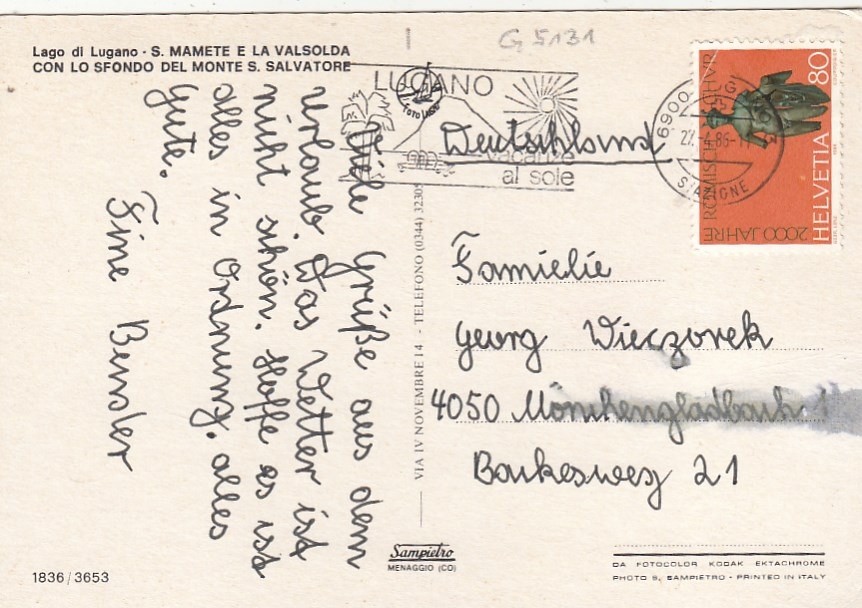 G 5131
Lago di Lugano - S. MAMETE E LA VALSOLDA
CON LO SFONDO DEL MONTE S. SALVATORE
LUGANO
vacanze
al sole
6900
STAZIONE
2000 JAHRE
RÖMISCH CHUR
HELVETIA 80
Viele Grüße aus dem
Urlaub. Das Wetter ist
nicht schön. Hoffe es ist
alles in Ordnung. alles
gute.
Tine Bender
Deutschland
Familie
Georg Wieczorek
4050 Mönchengladbach 1
Bankesweg 21
VIA IV NOVEMBRE 14 - TELEFONO (0344) 3230
Sampietro
MENAGGIO (CO)
1836/3653
DA FOTOCOLOR KODAK EKTACHROME
PHOTO S. SAMPIETRO - PRINTED IN ITALY